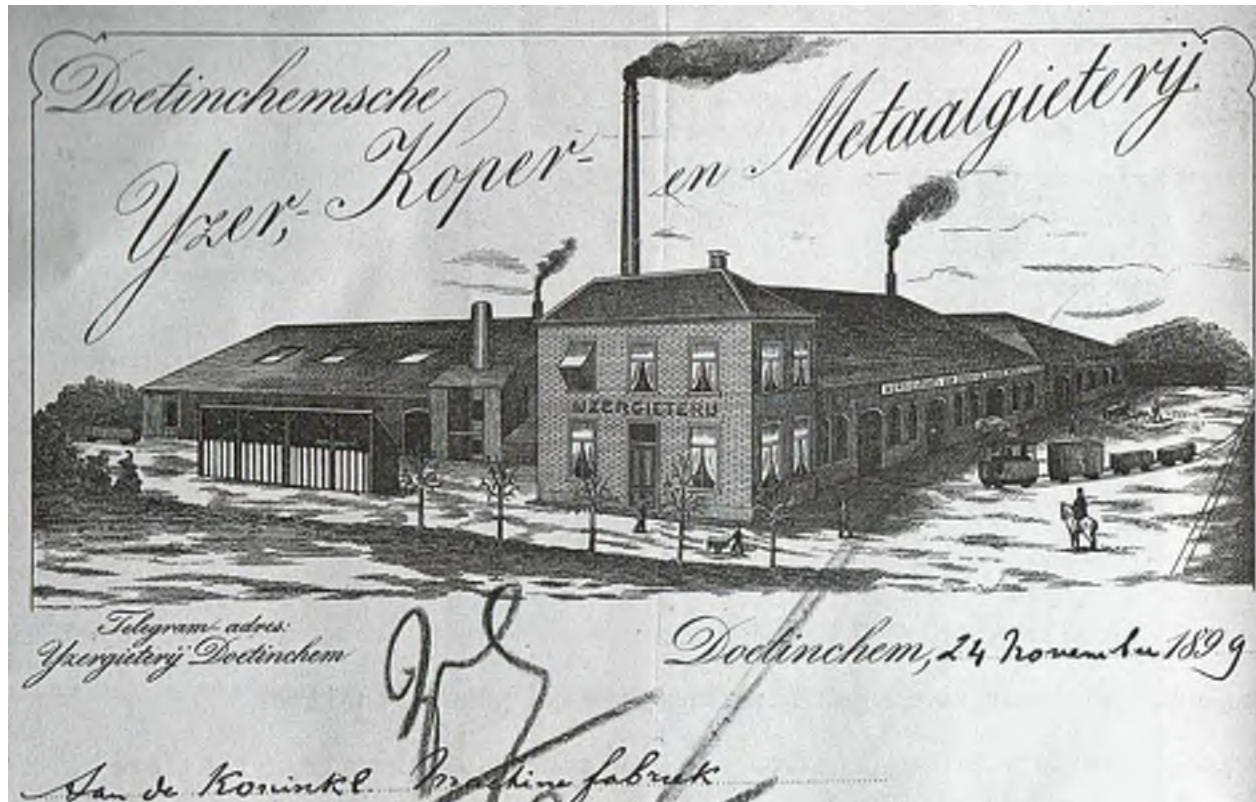 Doetinchemsche
Yzer,- Koper- en Metaalgieterij.
IJZERGIETERIJ
Telegram-adres:
Yzergieterij Doetinchem
Doetinchem, 24 November 1899
Aan de Koninkl. Machinefabriek